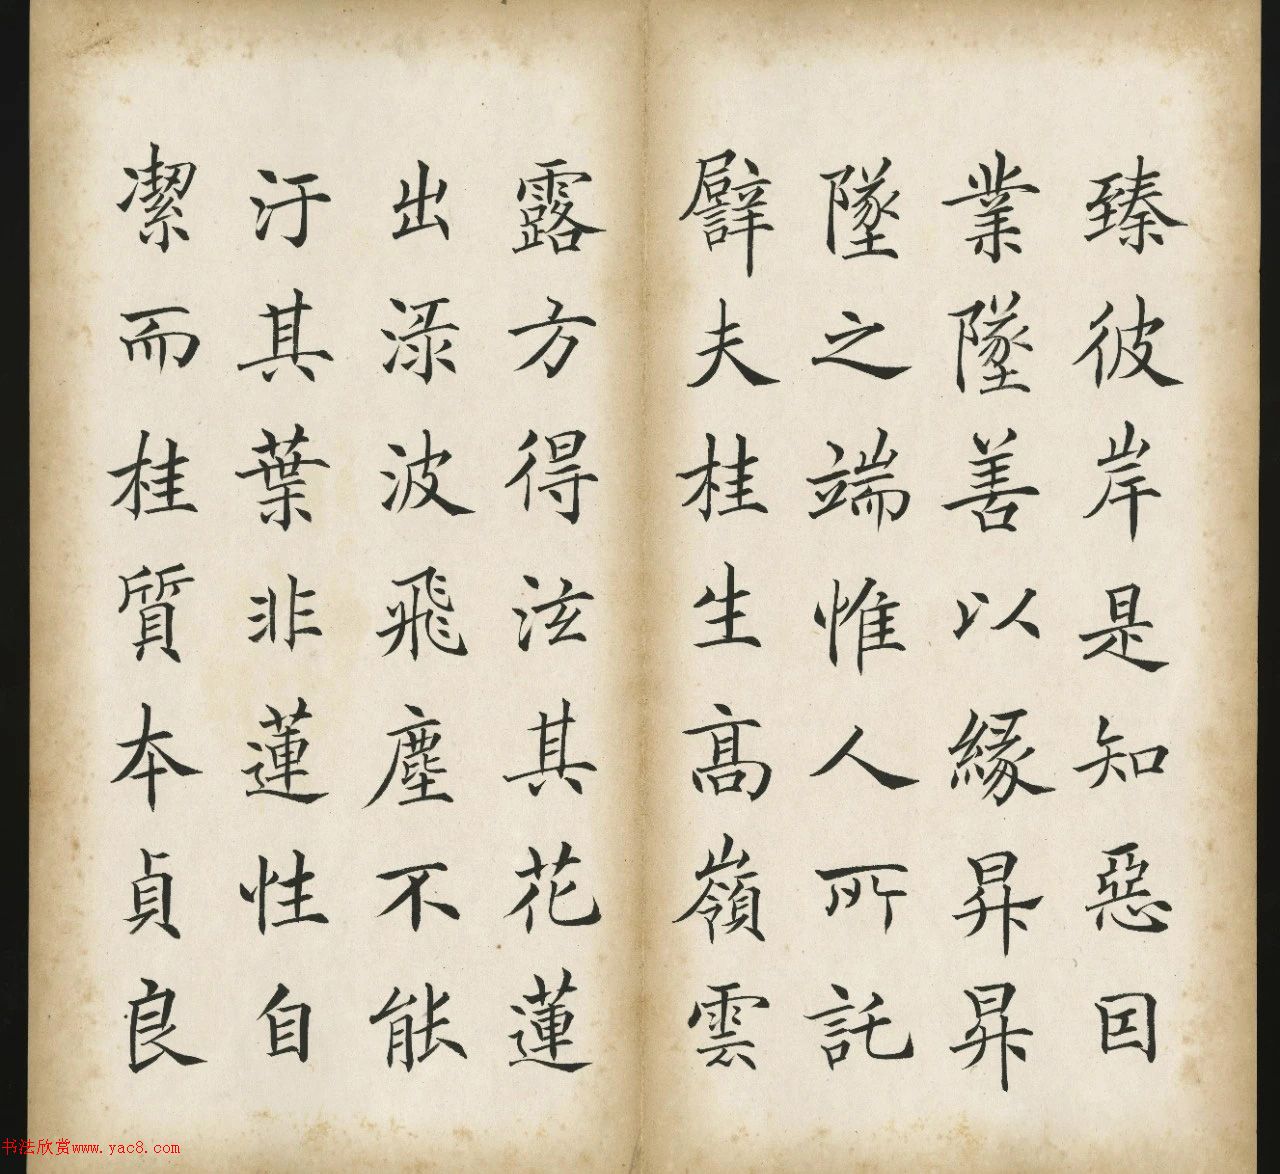 臻彼岸是知惡因
業墜善以緣昇昇
墜之端惟人所託
譬夫桂生高嶺雲
露方得泫其花蓮
出淥波飛塵不能
汙其葉非蓮性自
潔而桂質本貞良
书法欣赏www.yac8.com